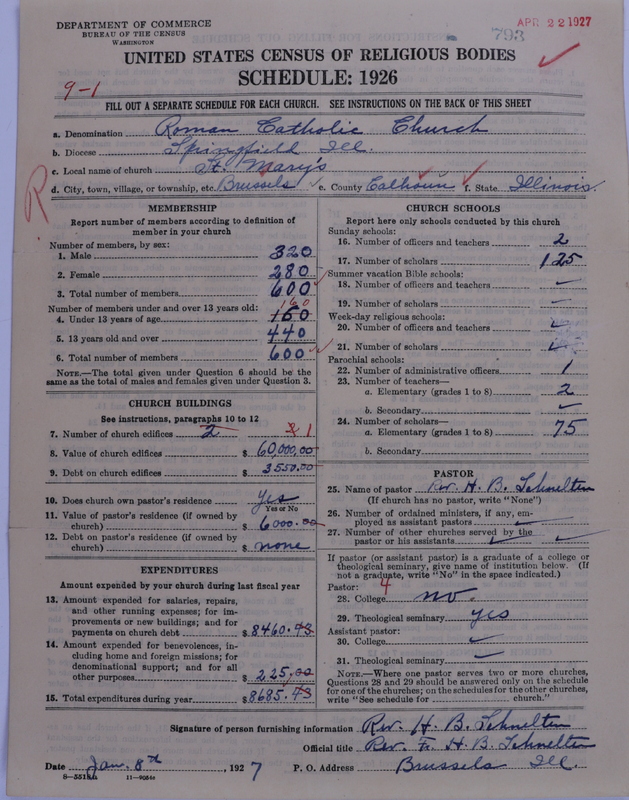 DEPARTMENT OF COMMERCE
BUREAU OF THE CENSUS
WASHINGTON
APR 22 1927
793
UNITED STATES CENSUS OF RELIGIOUS BODIES
SCHEDULE: 1926
9-1
FILL OUT A SEPARATE SCHEDULE FOR EACH CHURCH. SEE INSTRUCTIONS ON THE BACK OF THIS SHEET
a. Denomination Roman Catholic Church
b. Diocese Springfield Ill.
c. Local name of church St. Mary's
d. City, town, village, or township, etc. Brussels e. County Calhoun f. State Illinois
R
MEMBERSHIP
Report number of members according to definition of
member in your church
Number of members, by sex:
1. Male 320
2. Female 280
3. Total number of members 600
Number of members under and over 13 years old: 160
4. Under 13 years of age 160
5. 13 years old and over 440
6. Total number of members 600
NOTE.—The total given under Question 6 should be the
same as the total of males and females given under Question 3.
CHURCH BUILDINGS
See instructions, paragraphs 10 to 12
7. Number of church edifices 2 1
8. Value of church edifices $ 60,000.00
9. Debt on church edifices $ 3550.00
10. Does church own pastor's residence yes
Yes or No
11. Value of pastor's residence (if owned by
church) $ 6000.00
12. Debt on pastor's residence (if owned by
church) $ none
EXPENDITURES
Amount expended by your church during last fiscal year
13. Amount expended for salaries, repairs,
and other running expenses; for im-
provements or new buildings; and for
payments on church debt $ 8460.73
14. Amount expended for benevolences, in-
cluding home and foreign missions; for
denominational support; and for all
other purposes $ 225.00
15. Total expenditures during year $ 8685.73
CHURCH SCHOOLS
Report here only schools conducted by this church
Sunday schools:
16. Number of officers and teachers 2
17. Number of scholars 125
Summer vacation Bible schools:
18. Number of officers and teachers
19. Number of scholars
Week-day religious schools:
20. Number of officers and teachers
21. Number of scholars
Parochial schools:
22. Number of administrative officers 1
23. Number of teachers—
a. Elementary (grades 1 to 8) 2
b. Secondary
24. Number of scholars—
a. Elementary (grades 1 to 8) 75
b. Secondary
PASTOR
25. Name of pastor Rev. H. B. Schnelten
(If church has no pastor, write "None")
26. Number of ordained ministers, if any, em-
ployed as assistant pastors
27. Number of other churches served by the
pastor or his assistants
If pastor (or assistant pastor) is a graduate of a college or
theological seminary, give name of institution below. (If
not a graduate, write "No" in the space indicated.)
Pastor: 4
28. College no
29. Theological seminary yes
Assistant pastor:
30. College
31. Theological seminary
NOTE.—Where one pastor serves two or more churches,
Questions 28 and 29 should be answered only on the schedule
for one of the churches; on the schedules for the other churches,
write "See schedule for church."
Signature of person furnishing information Rev. H. B. Schnelten
Official title Rev. Fr. H. B. Schnelten
Date Jan. 8th, 1927 P. O. Address Brussels Ill.
11—9056